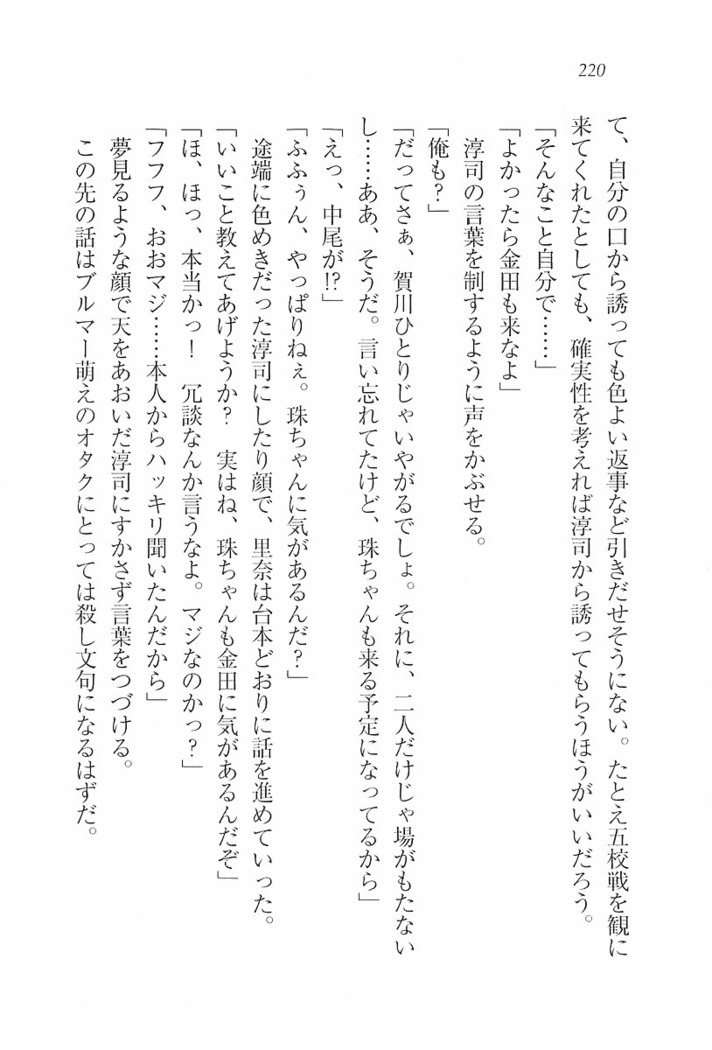 220
て、自分の口から誘っても色よい返事など引きだせそうにない。たとえ五校戦を観に
来てくれたとしても、確実性を考えれば淳司から誘ってもらうほうがいいだろう。
「そんなこと自分で……」
「よかったら金田も来なよ」
淳司の言葉を制するように声をかぶせる。
「俺も？」
「だってさぁ、賀川ひとりじゃいやがるでしょ。それに、二人だけじゃ場がもたない
し……ああ、そうだ。言い忘れてたけど、珠ちゃんも来る予定になってるから」
「えっ、中尾が!?」
「ふふぅん、やっぱりねぇ。珠ちゃんに気があるんだ？」
途端に色めきだった淳司にしたり顔で、里奈は台本どおりに話を進めていった。
「いいこと教えてあげようか？　実はね、珠ちゃんも金田に気があるんだぞ」
「ほ、ほっ、本当かっ！　冗談なんか言うなよ。マジなのかっ？」
「フフフ、おおマジ……本人からハッキリ聞いたんだから」
夢見るような顔で天をあおいだ淳司にすかさず言葉をつづける。
この先の話はブルマー萌えのオタクにとっては殺し文句になるはずだ。